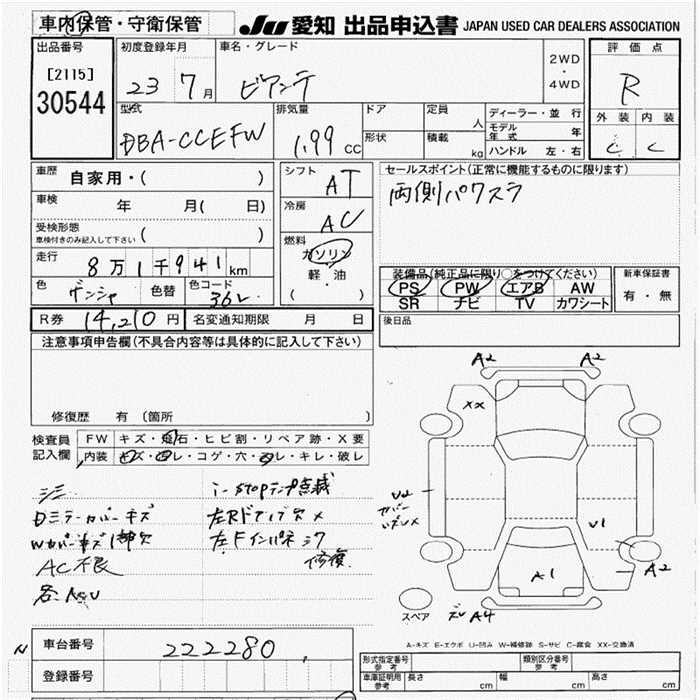 車内保管・守衛保管
JU 愛知 出品申込書 JAPAN USED CAR DEALERS ASSOCIATION
出品番号
[2115]
30544
初度登録年月
23 7月
車名・グレード
ビアンテ
2WD
・
4WD
評価点
R
外装 内装
C C
型式
DBA-CCEFW
排気量
1.99 CC
ドア
形状
定員
人
積載
kg
ディーラー・並 行
モデル年式 年
ハンドル 左・右
車歴
自家用・( )
車検
年 月( 日)
受検形態
車検付きのみ記入して下さい ( )
走行
8万1千941km
色
色替
色コード
R券 14,210円
名変通知期限 月 日
シフト
AT
冷房
AC
燃料
ガソリン
軽・油
( )
セールスポイント(正常に機能するものに限ります)
両側パワスラ
装備品(純正品に限り○をつけてください)
PS PW エアB AW
SR ナビ TV カワシート
新車保証書
有・無
後日品
注意事項申告欄(不具合内容等は具体的に記入して下さい)
修復歴 有 (箇所
検査員
記入欄
FW キズ・飛石・ヒビ割・リペア跡・X要
内装 キズ・汚レ・コゲ・穴・ヌレ・キレ・破レ
シミ
Dミラーカバーキズ
AC不良
左Fインパネ
修復
A2 A2
XX
U2
U1
A1
A2
スペア
A4
A-キズ E-エクボ U-凹み W-補修跡 S-サビ C-腐食 XX-交換済
車台番号
222280
登録番号
形式指定番号
参考
類別区分番号
参考
車庫証明用
参考
長さ cm 幅 cm 高さ cm